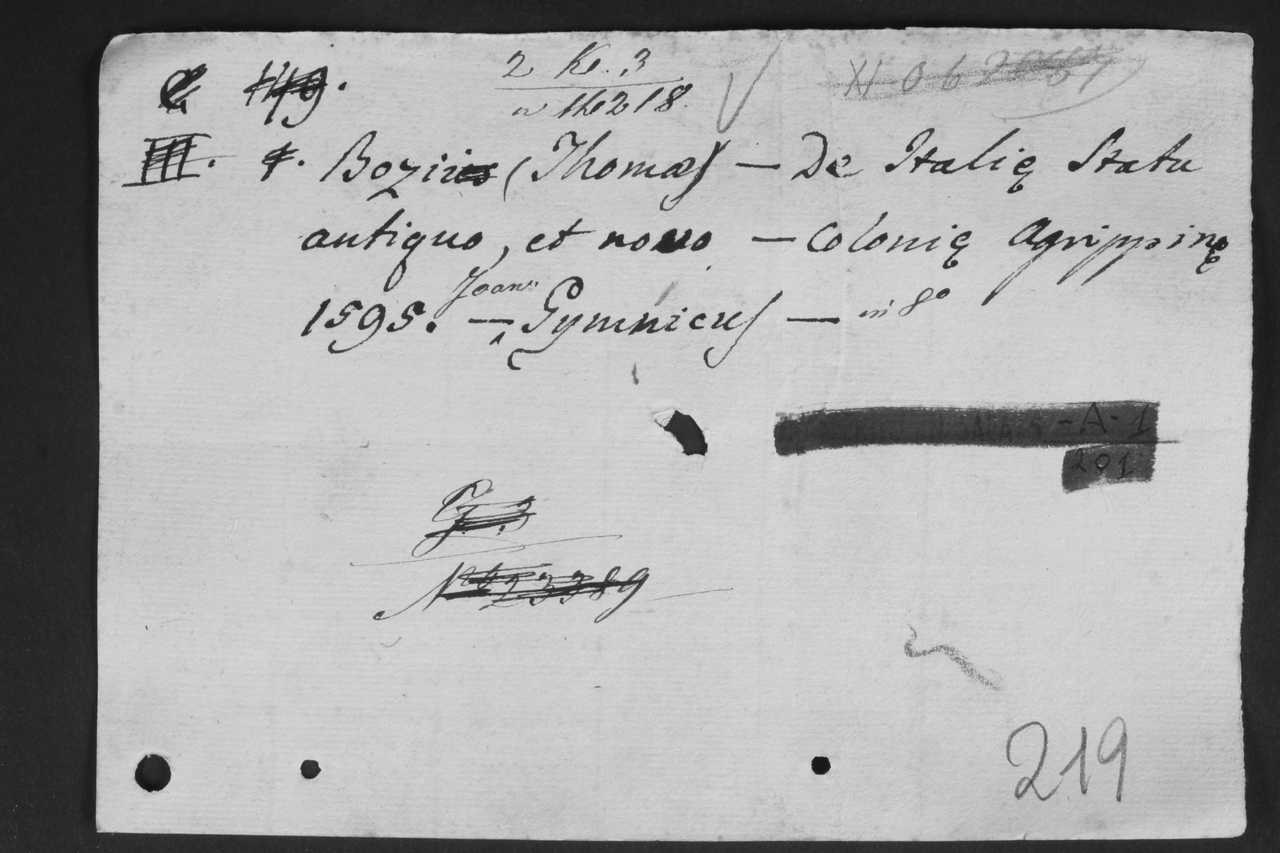 2 K. 3
218
III. Bozii (Thomas) — De Italię Statu
antiquo, et novo — Colonię Agrippinę
1595. — Joan: Gymnicus — in 8º
- A - 1
201
G. 3
N 23389
219